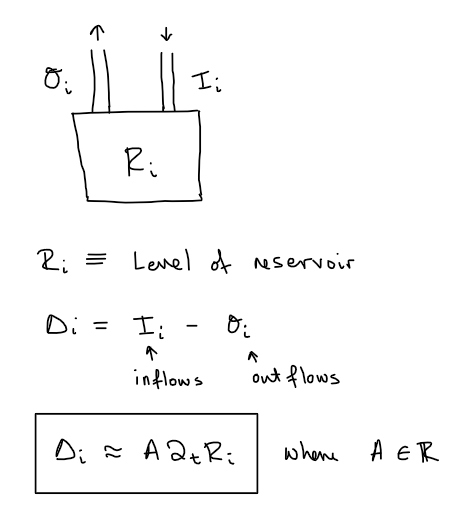 O_i I_i
R_i
R_i ≡ Level of reservoir
D_i = I_i - O_i
inflows outflows
D_i ≈ A ∂_t R_i where A ∈ ℝ